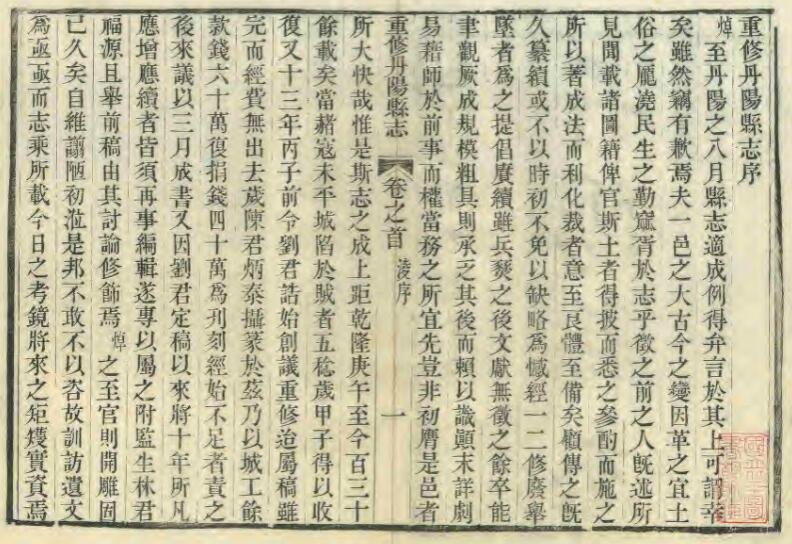 重修丹陽縣志序
焯至丹陽之八月縣志適成例得弁言於其上可謂幸
矣雖然竊有歉焉夫一邑之大古今之變因革之宜土
俗之龐澆民生之勤窳胥於志乎徵之前之人旣述所
見聞載諸圖籍俾官斯土者得披而悉之參酌而施之
所以著成法而利化裁者意至良體至備矣顧傳之旣
久纂續或不以時初不免以缺略為憾經一二修廢舉
墜者為之提倡賡續雖兵燹之後文獻無徵之餘卒能
聿觀厥成規模粗具則承乏其後而賴以識顛末詳劇
易藉師於前事而權當務之所宜先豈非初膺是邑者
重修丹陽縣志 卷之首 淩序 一
所大快哉惟是斯志之成上距乾隆庚午至今百三十
餘載矣當赭寇未平城陷於賊者五稔歲甲子得以收
復又十三年丙子前令劉君誥始創議重修迨屬稿雖
完而經費無出去歲陳君炳泰攝篆於茲乃以城工餘
款錢六十萬復捐錢四十萬為刋刻經始不足者責之
後來議以三月成書又因劉君定稿以來將十年所凡
應增應續者皆須再事編輯遂專以屬之附監生林君
福源且舉前稿由其討論修飾焉焯之至官則開雕固
已久矣自維譾陋初涖是邦不敢不以咨故訓訪遺文
為亟亟而志乘所載今日之考鏡將來之矩矱實資焉